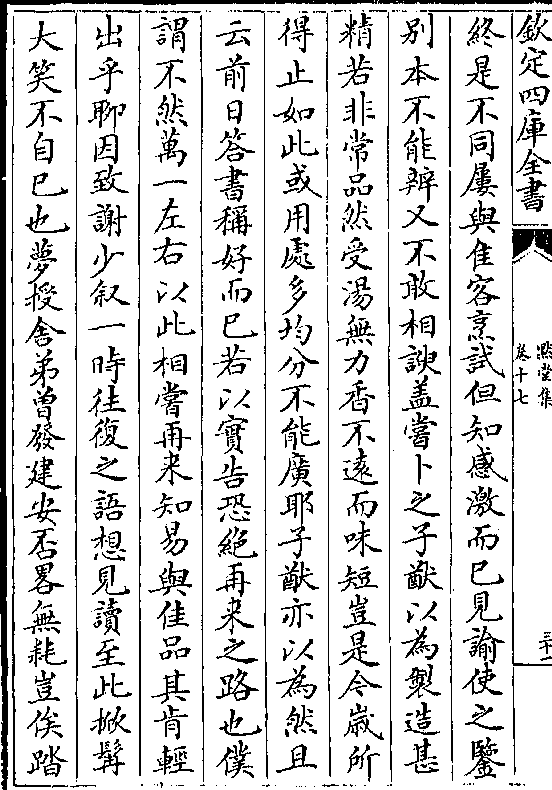 欽定四庫全書
然堂集
卷十七
三十二
終是不同屢與佳客烹試但知感激而已見諭使之鑒
别本不能辨又不敢相諛盖嘗卜之子猷以為製造甚
精若非常品然受湯無力香不遠而味短豈是今歲所
得止如此或用處多均分不能廣耶子猷亦以為然且
云前日答書稱好而已若以實告恐絶再来之路也僕
謂不然萬一左右以此相嘗再来知易與佳品其肯輕
出乎聊因致謝少叙一時往復之語想見讀至此掀髯
大笑不自已也夢授舍弟曽發建安否畧無耗豈俟踏